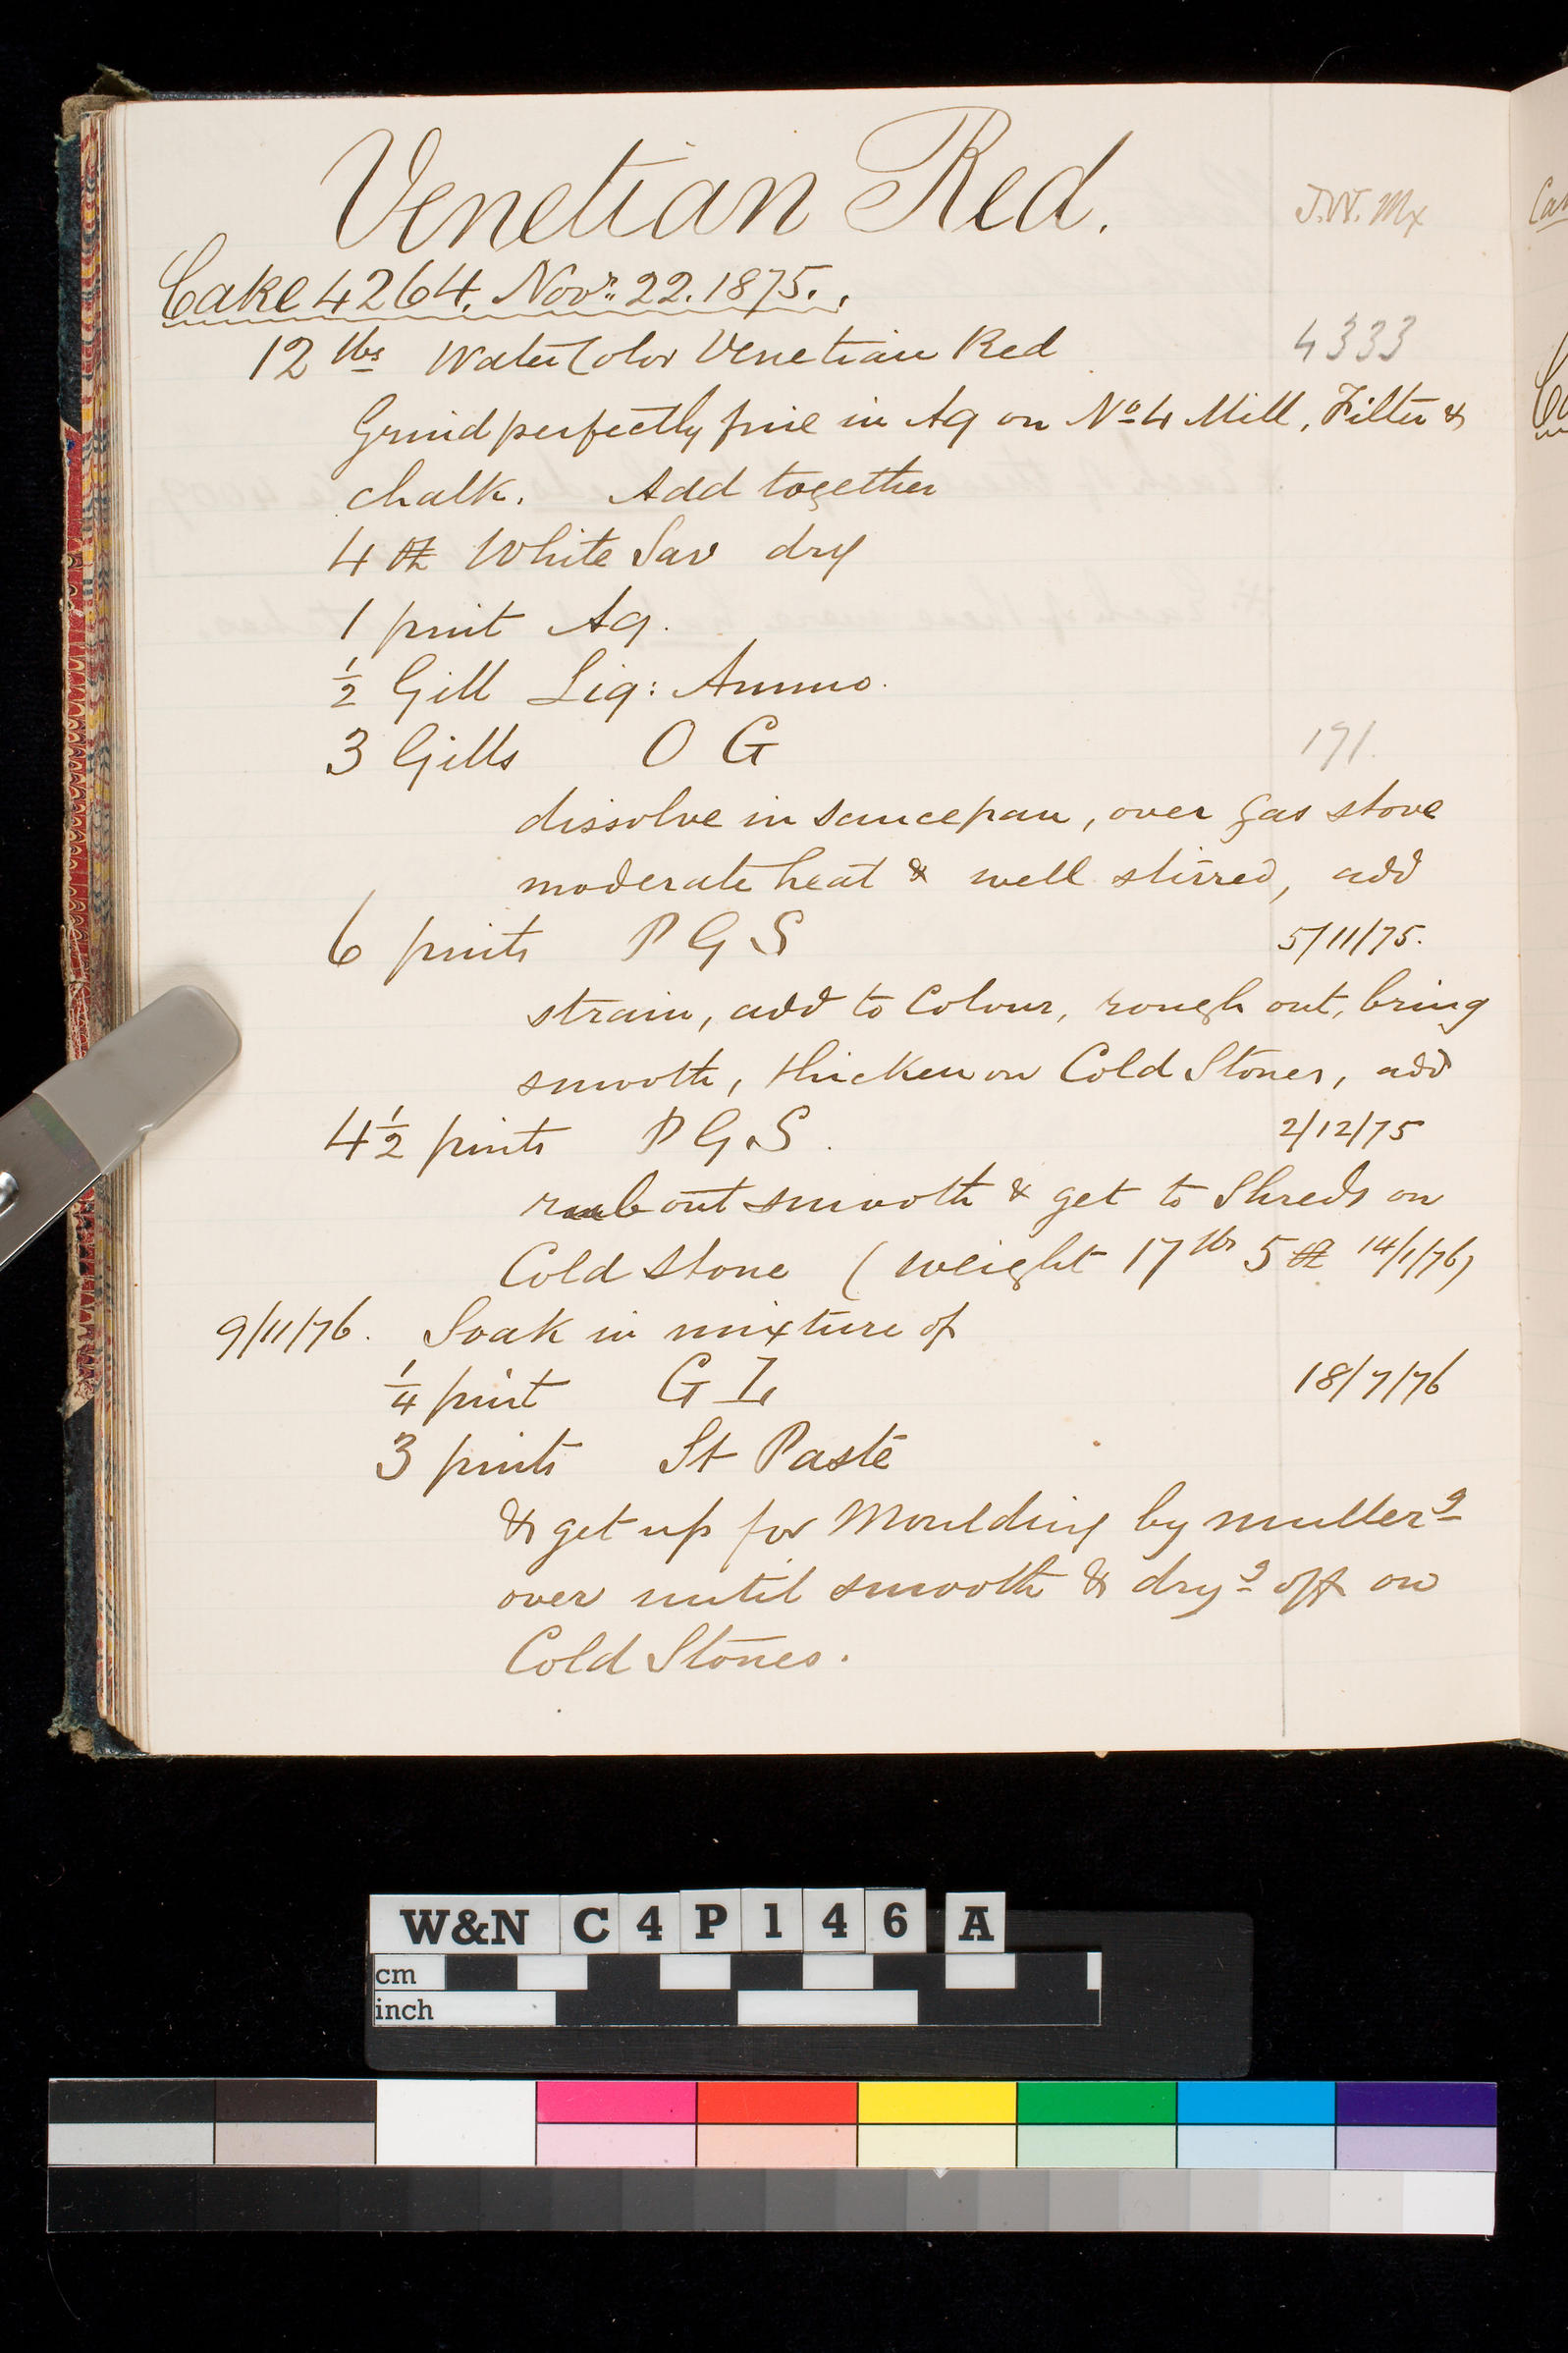 Venetian Red.
J.W. Mx
Cake 4264. Novr. 22. 1875.
12 lbs Water Color Venetian Red 4333
Grind perfectly fine in Aq on No 4 Mill, Filter &
chalk. Add together
4 oz White Sav dry
1 pint Aq.
½ Gill Liq: Ammo.
3 Gills O G 191.
dissolve in saucepan, over gas stove
moderate heat & well stirred, add
6 pints P G S 5/11/75.
strain, add to Colour, rough out, bring
smooth, thicken on Cold Stones, add
4½ pints P G S. 2/12/75
rub out smooth & get to Shreds on
Cold Stone (weight 17 lbs 5 oz 14/1/76)
9/11/76. Soak in mixture of
¼ pint G I, 18/7/76
3 pints St Paste
& get up for Moulding by mullerg
over until smooth & dryg off on
Cold Stones.
W&N C4P146A
cm
inch